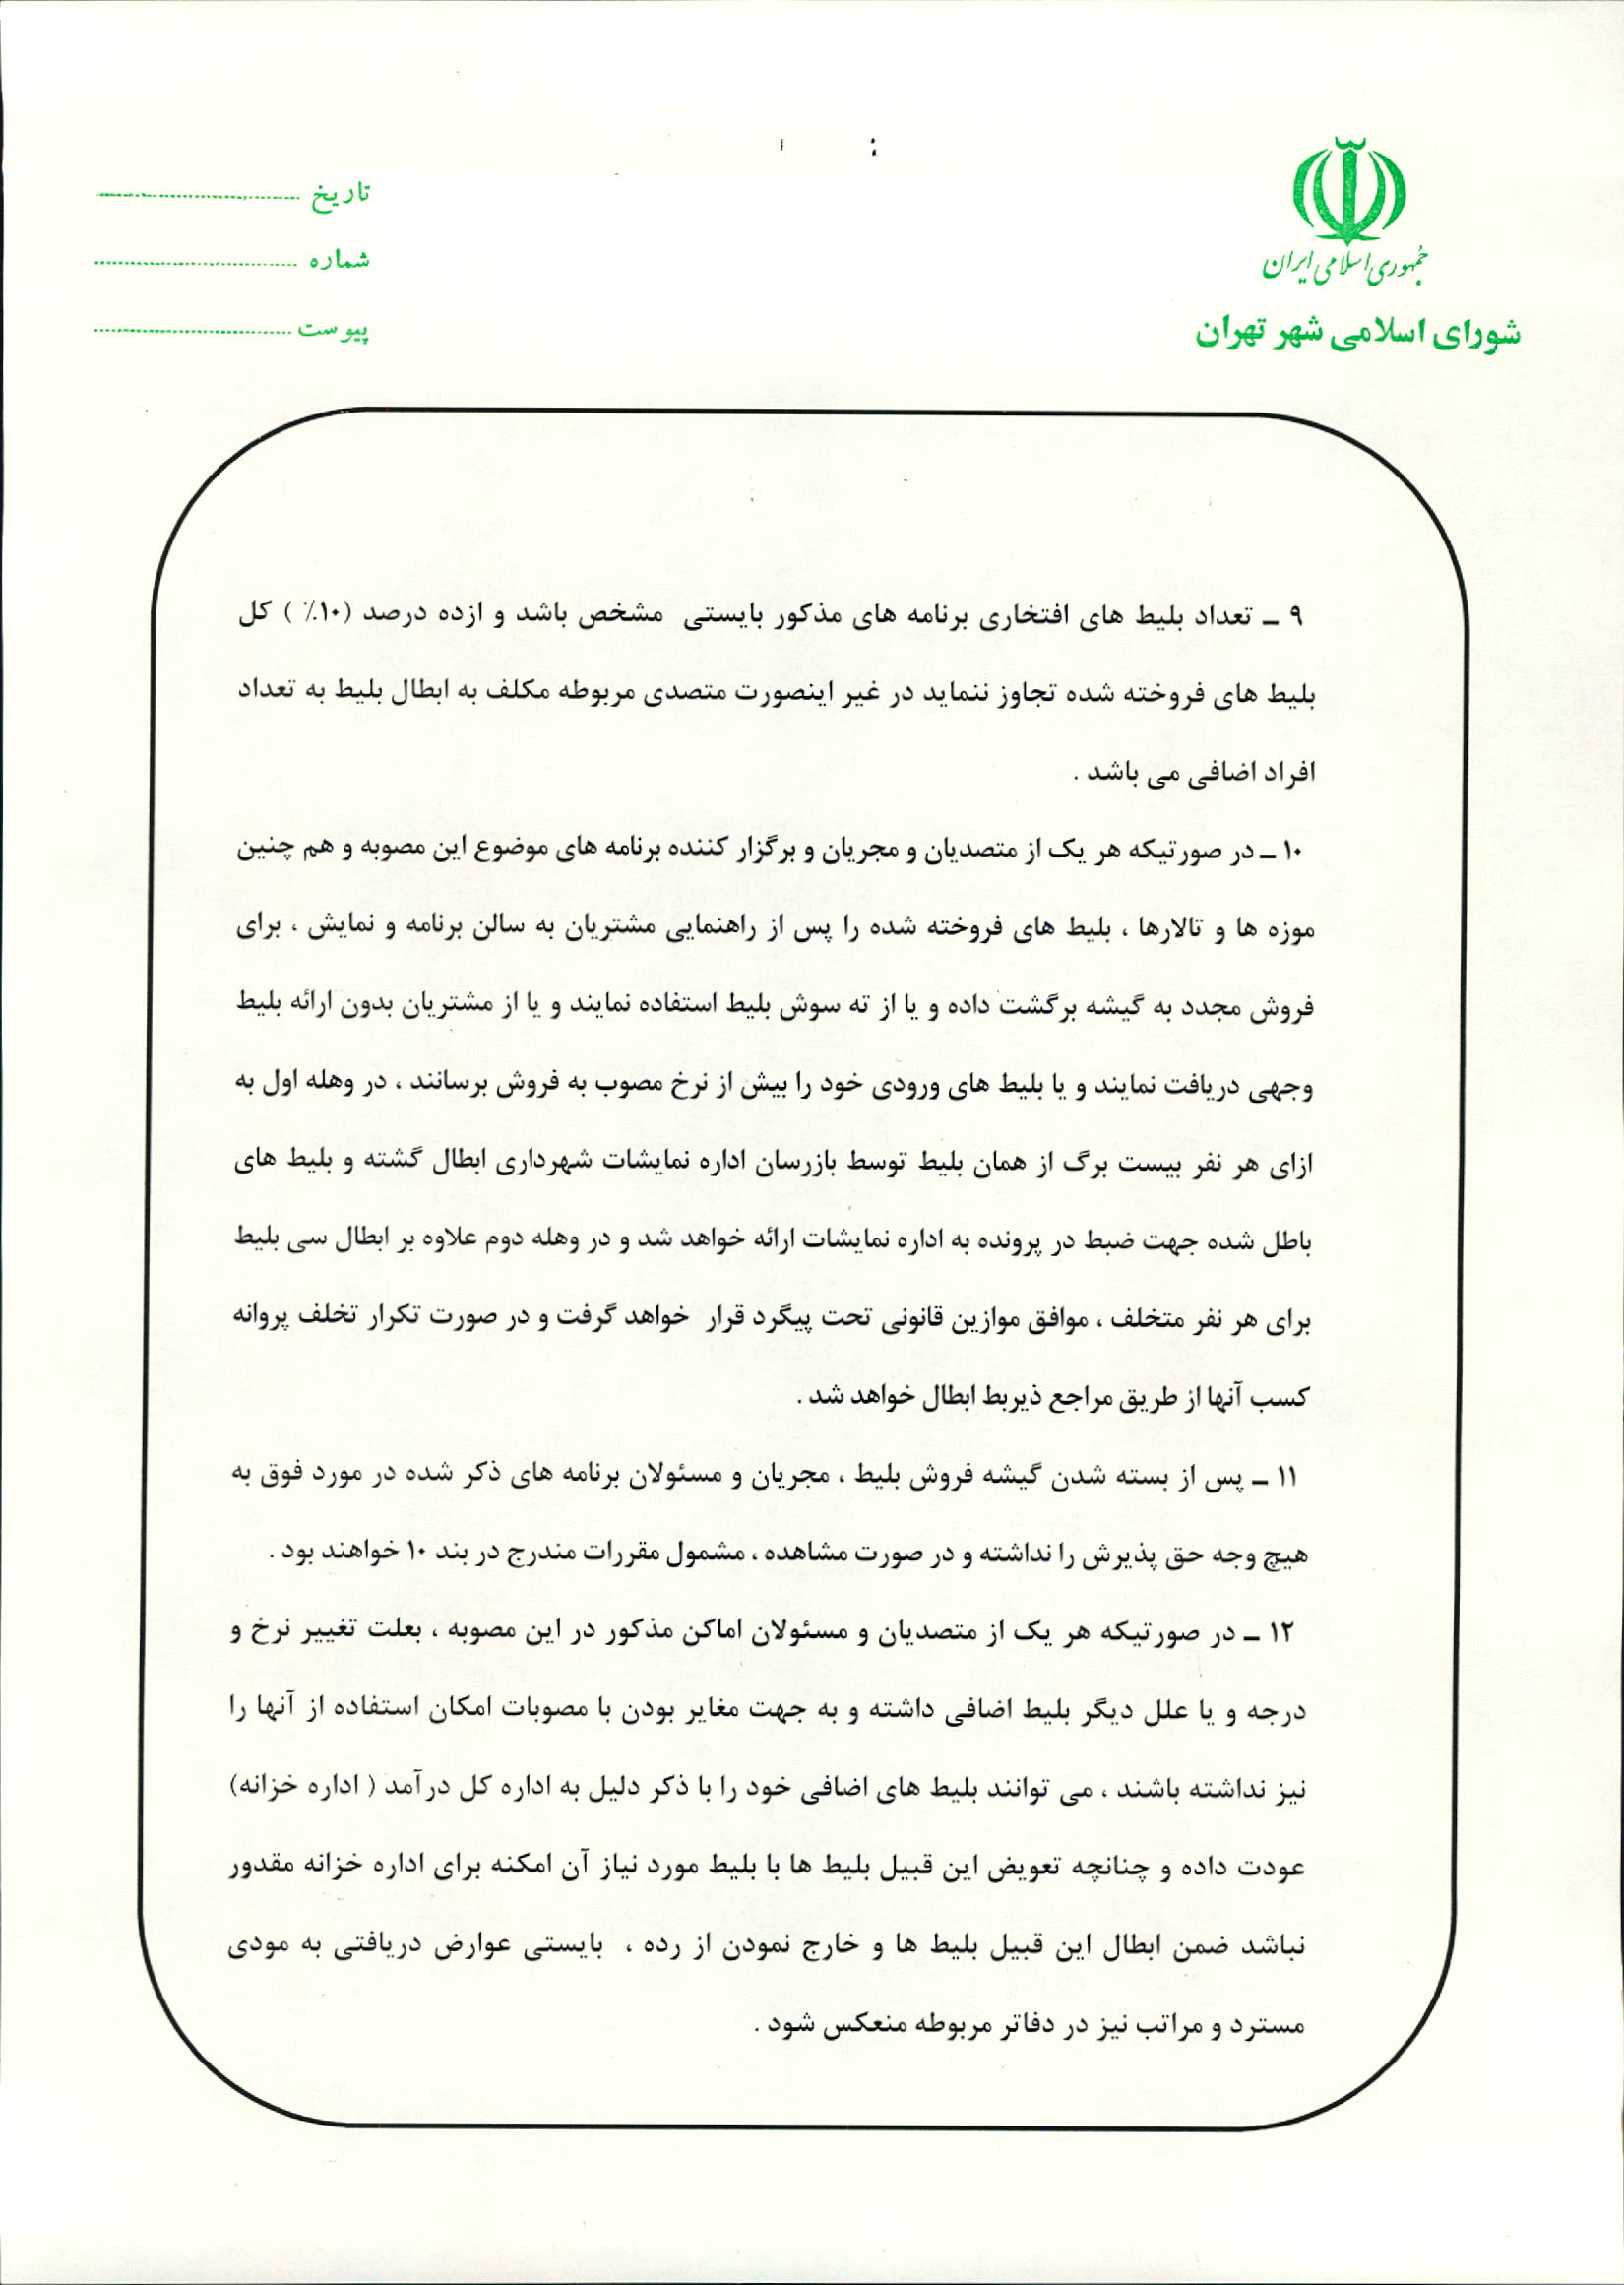 جمهوری اسلامی ایران
شورای اسلامی شهر تهران
تاریخ
شماره
پیوست
۹ ـ تعداد بلیط های افتخاری برنامه های مذکور بایستی مشخص باشد و ازده درصد (۱۰٪ ) کل
بلیط های فروخته شده تجاوز ننماید در غیر اینصورت متصدی مربوطه مکلف به ابطال بلیط به تعداد
افراد اضافی می باشد .
۱۰ ـ در صورتیکه هر یک از متصدیان و مجریان و برگزار کننده برنامه های موضوع این مصوبه و هم چنین
موزه ها و تالارها ، بلیط های فروخته شده را پس از راهنمایی مشتریان به سالن برنامه و نمایش ، برای
فروش مجدد به گیشه برگشت داده و یا از ته سوش بلیط استفاده نمایند و یا از مشتریان بدون ارائه بلیط
وجهی دریافت نمایند و یا بلیط های ورودی خود را بیش از نرخ مصوب به فروش برسانند ، در وهله اول به
ازای هر نفر بیست برگ از همان بلیط توسط بازرسان اداره نمایشات شهرداری ابطال گشته و بلیط های
باطل شده جهت ضبط در پرونده به اداره نمایشات ارائه خواهد شد و در وهله دوم علاوه بر ابطال سی بلیط
برای هر نفر متخلف ، موافق موازین قانونی تحت پیگرد قرار خواهد گرفت و در صورت تکرار تخلف پروانه
کسب آنها از طریق مراجع ذیربط ابطال خواهد شد .
۱۱ ـ پس از بسته شدن گیشه فروش بلیط ، مجریان و مسئولان برنامه های ذکر شده در مورد فوق به
هیچ وجه حق پذیرش را نداشته و در صورت مشاهده ، مشمول مقررات مندرج در بند ۱۰ خواهند بود .
۱۲ ـ در صورتیکه هر یک از متصدیان و مسئولان اماکن مذکور در این مصوبه ، بعلت تغییر نرخ و
درجه و یا علل دیگر بلیط اضافی داشته و به جهت مغایر بودن با مصوبات امکان استفاده از آنها را
نیز نداشته باشند ، می توانند بلیط های اضافی خود را با ذکر دلیل به اداره کل درآمد ( اداره خزانه)
عودت داده و چنانچه تعویض این قبیل بلیط ها با بلیط مورد نیاز آن امکنه برای اداره خزانه مقدور
نباشد ضمن ابطال این قبیل بلیط ها و خارج نمودن از رده ، بایستی عوارض دریافتی به مودی
مسترد و مراتب نیز در دفاتر مربوطه منعکس شود .